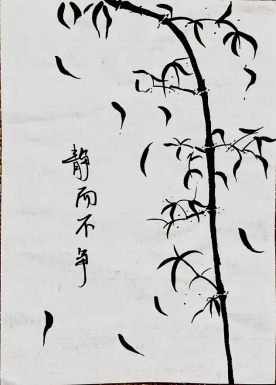 静而不争